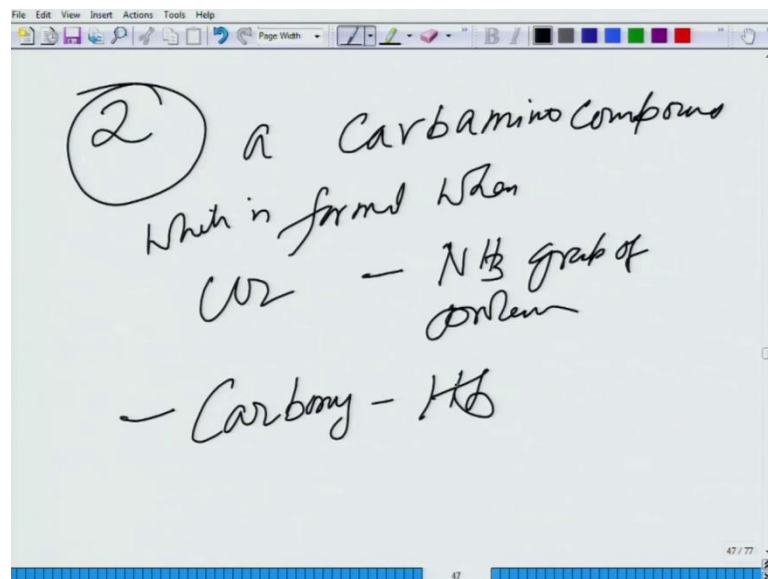 File Edit View Insert Actions Tools Help
Page Width
B I
2 a Carbamino Compound
which is formed when
CO2 - NH3 group of
- Carboxy - Hb
47 / 77
47